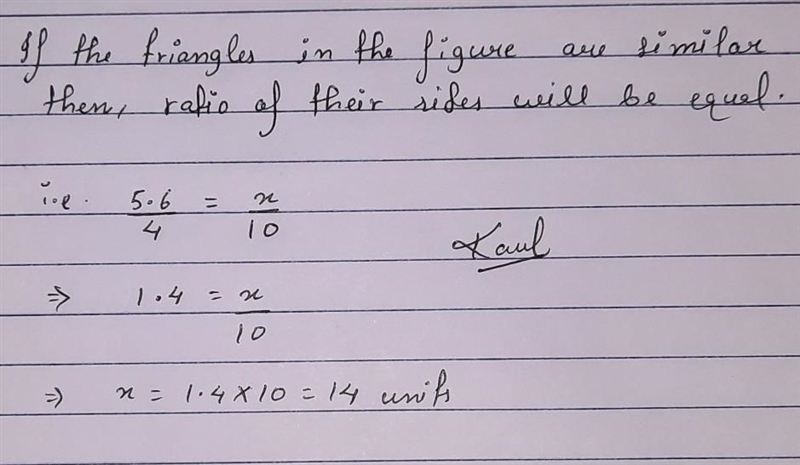 If the triangles in the figure are similar
then, ratio of their sides will be equal.
i.e. 5.6/4 = x/10
Kaul
⇒ 1.4 = x/10
⇒ x = 1.4 × 10 = 14 units